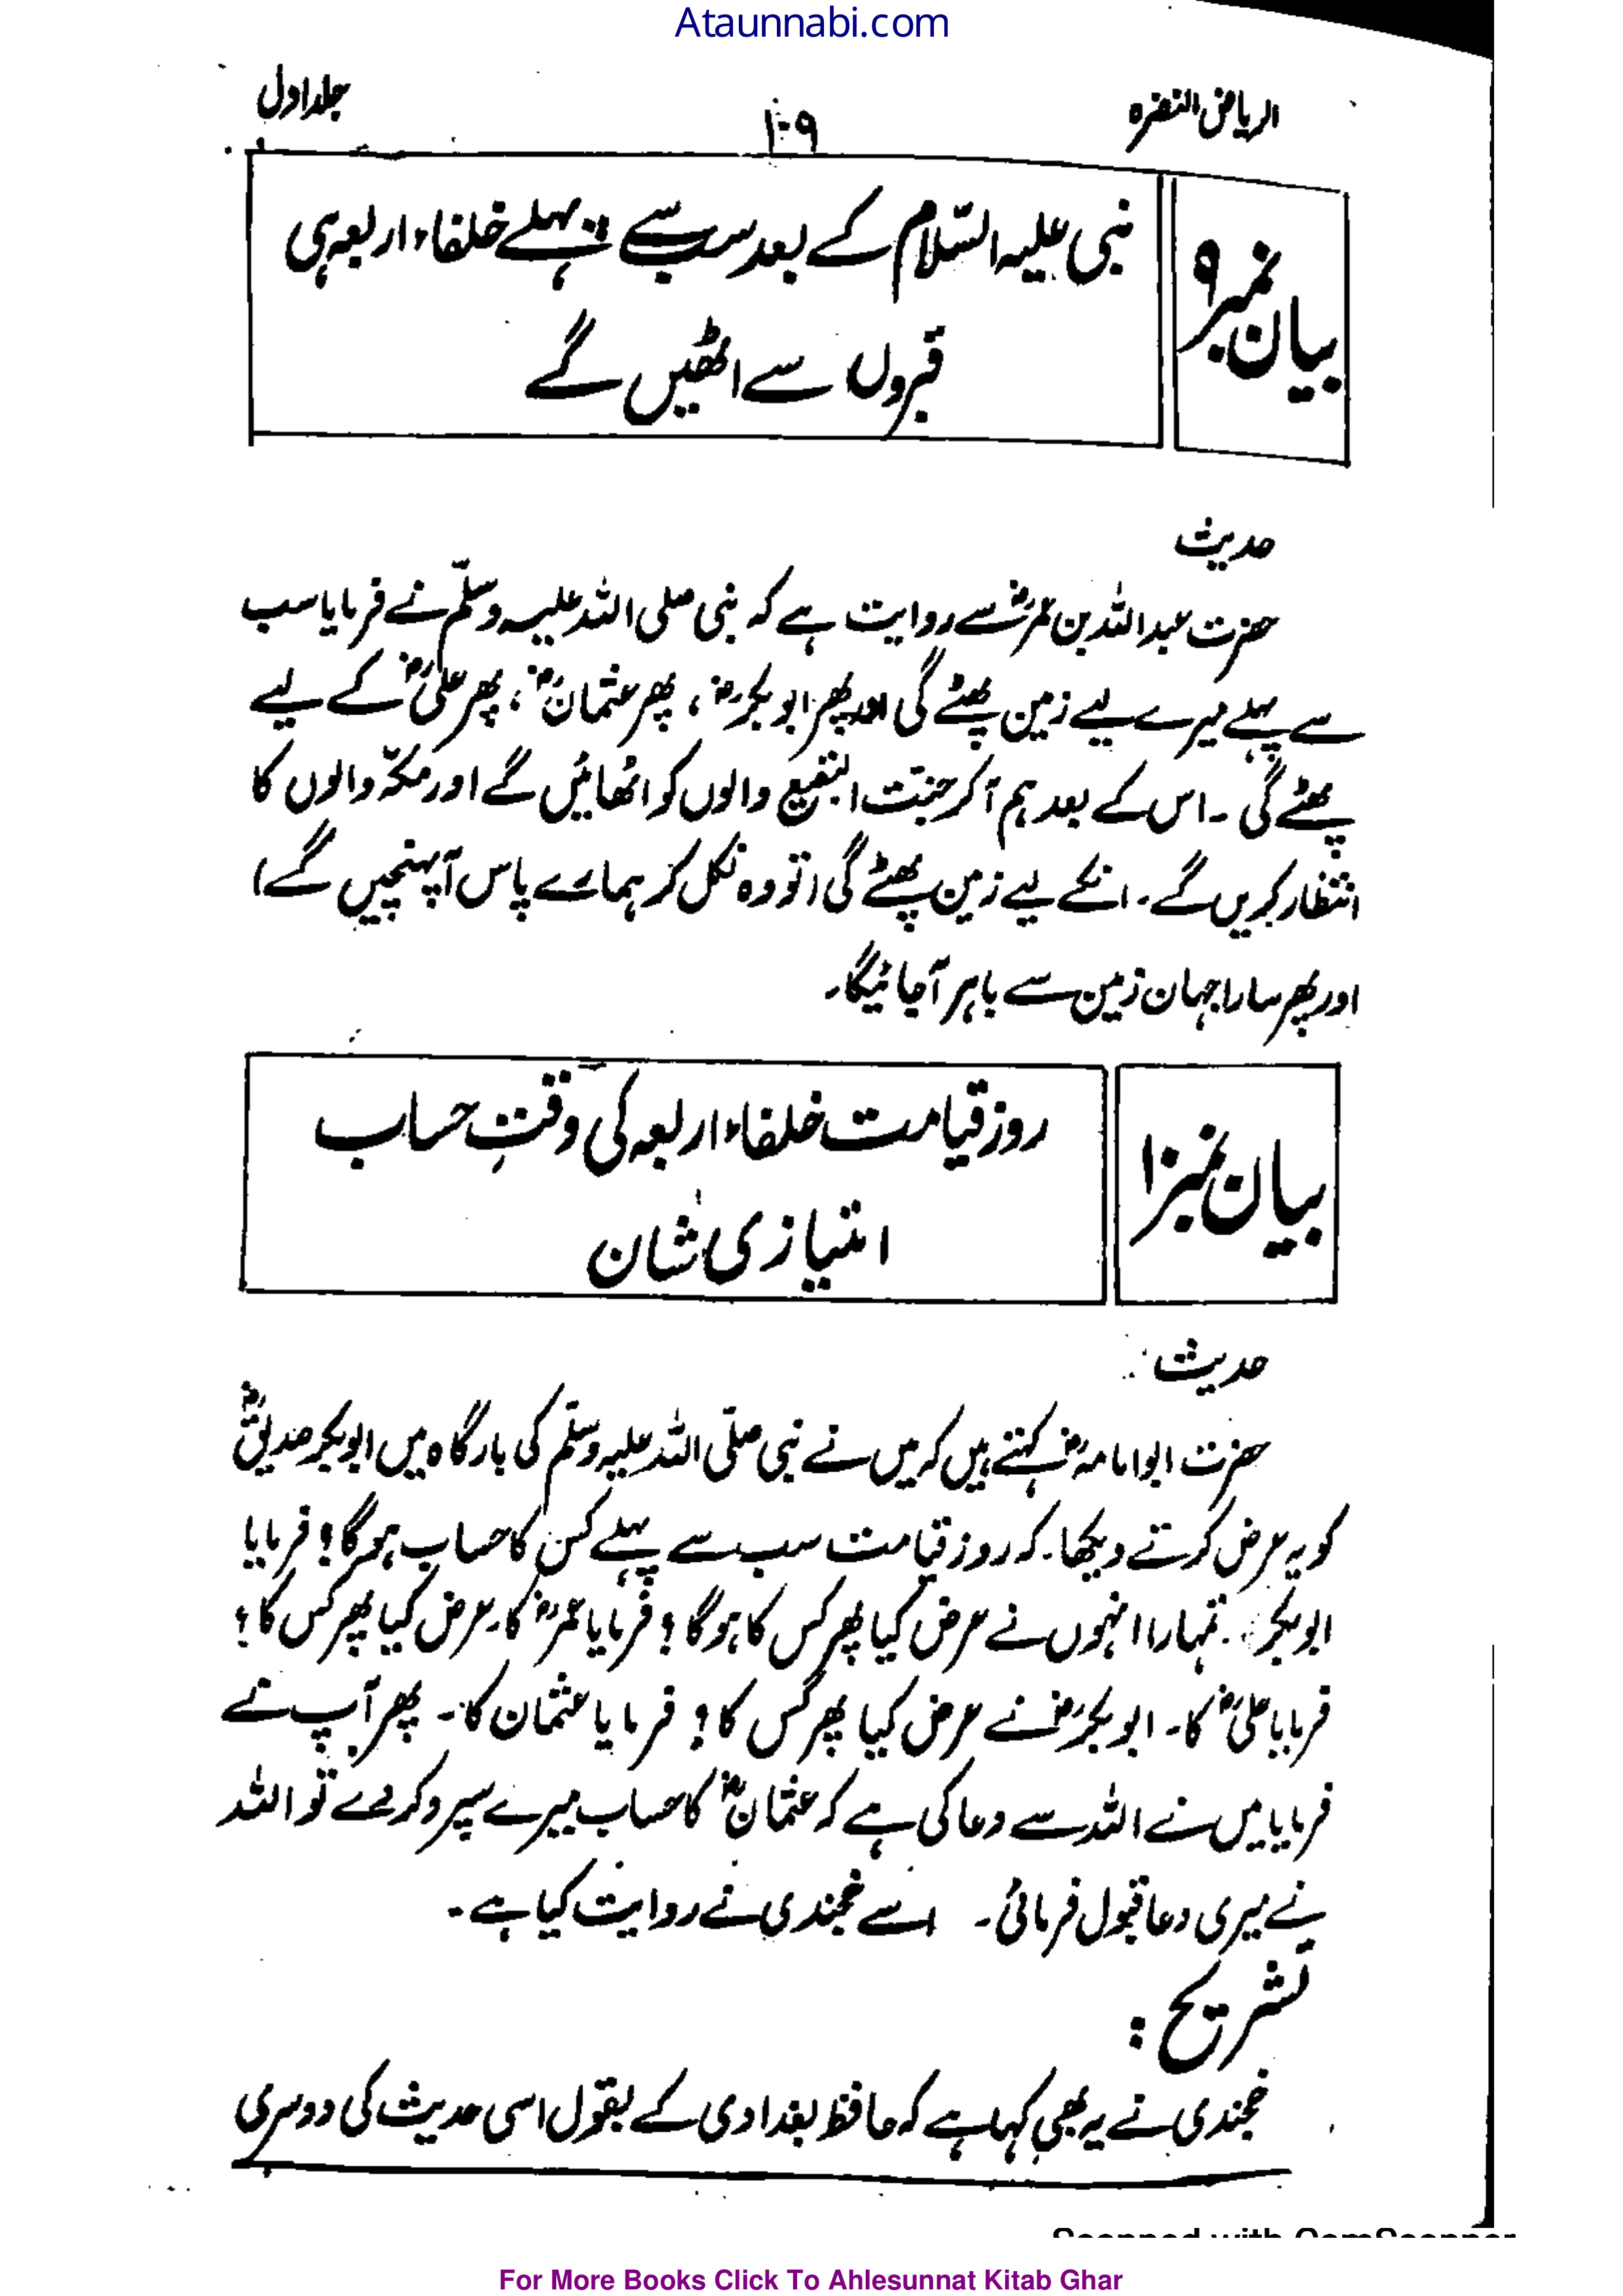 Ataunnabi.com
الریاض النضرہ
۱۰۹
جلد اول
بیان نمبر ۹
نبی علیہ السّلام کے بعد سب سے پہلے خلفاء اربعہ ہی
قبروں سے اٹھیں گے
حدیث
حضرت عبد اللہ بن عمرؓ سے روایت ہے کہ نبی صلی اللہ علیہ وسلّم نے فرمایا سب
سے پہلے میرے لیے زمین پھٹے گی اور پھر ابوبکرؓ، پھر عثمانؓ، پھر علیؓ کے لیے
پھٹے گی ۔ اس کے بعد ہم آکر جنّت البقیع والوں کو اٹھائیں گے اور مکّہ والوں کا
انتظار کریں گے ۔ انکے لیے زمین پھٹے گی (تو وہ نکل کر ہمارے پاس آپہنچیں گے)
اور پھر سارا جہان زمین سے باہر آجائیگا۔
بیان نمبر ۱۰
روز قیامت خلفاء اربعہ کی وقتِ حساب
امتیازی شان
حدیث
حضرت ابو امامہؓ کہتے ہیں کہ میں نے نبی صلّی اللہ علیہ وسلّم کی بارگاہ میں ابوبکر صدیقؓ
کو یہ عرض کرتے دیکھا۔ کہ روز قیامت سب سے پہلے کس کا حساب ہوگا؟ فرمایا
ابوبکر تمہارا انہوں نے عرض کیا پھر کس کا ہوگا؟ فرمایا عمرؓ کا۔ عرض کیا پھر کس کا؟
فرمایا علیؓ کا۔ ابوبکرؓ نے عرض کیا پھر کس کا؟ فرمایا عثمان کا۔ پھر آپ نے
فرمایا میں نے اللہ سے دعا کی ہے کہ عثمانؓ کا حساب میرے سپرد کردے تو اللہ
نے میری دعا قبول فرمائی۔ اسے خجندی نے روایت کیا ہے۔
تشریح :
خجندی نے یہ بھی کہا ہے کہ حافظ بغدادی کے بقول اسی حدیث کی دوسری
Scanned with CamScanner
For More Books Click To Ahlesunnat Kitab Ghar